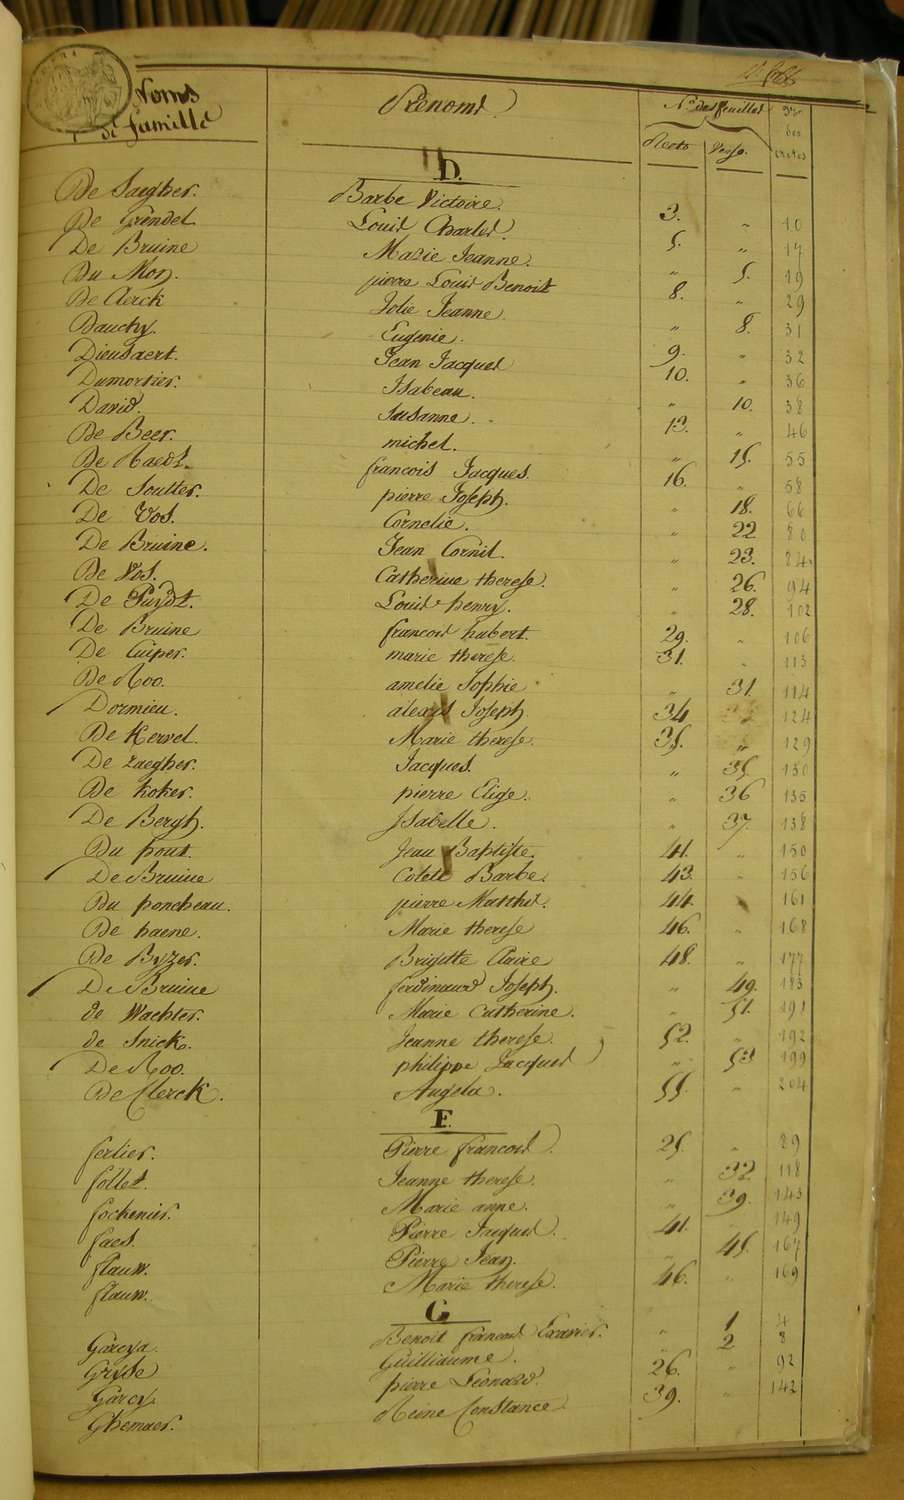 Noms de famille Prénoms Nos des feuilles
Recto Verso Nos des actes
D.
De Saegher. Barbe Victoire. 3. " 10
De Grendel Louis Charles. 5. " 17
De Bruine Marie Jeanne. " 5. 19
Du Mon. pierre Louis Benoit 8. " 29
De Clerck Jolie Jeanne " 8. 31
Dauchy. Eugenie. 9. " 32
Dieusaert. Jean Jacques 10. " 36
Dumortier. Isabeau. " 10. 38
David. Susanne. 13. " 46
De Beer. michel. " 15. 55
De Raedt. francois Jacques. 16. " 58
De Soutter. pierre Joseph. " 18. 66
De Vos. Cornelie. " 22 80
De Bruine. Jean Cornil. " 23. 84
De Vos. Catherine therese. " 26. 94
De Puydt. Louis henry. " 28. 102
De Bruine francois hubert 29. " 106
De Cuiper. marie therese. 31. " 113
De Roo. amelie Sophie " 31. 114
Dormieu. alexis Joseph 34 124
De Kervel. Marie therese. 35. " 129
De zaegher. Jacques. " 35. 130
De koker. pierre Elige. " 36 135
De Bergh. Isabelle. " 37. 138
Du pont. Jean Baptiste. 41. " 150
De Bruine Colete Barbe. 43. " 156
Du poncheau. pierre Matthis. 44. 161
De haene. Marie therese 46. " 168
De Byzer. Brigitte Claire 48. " 177
De Bruine ferdinand Joseph. " 49. 183
de Wachter. Marie Catherine. " 51. 191
de Snick. Jeanne therese. 52. " 192
De Roo. philippe Jacques " 53 199
De Clerck. Angela. 55. " 204
F.
ferlier. Pierre francois 25. " 89
follet. Jeanne therese. " 32. 118
fockenier. Marie anne. " 39. 143
faes. Pierre Jacques. 41. " 149
flauw. Pierre Jean. " 45. 167
flauw. Marie therese. 46. " 169
G
Garcya. Benoit francois Exavier. " 1 4
Gryse Guilliaume. " 2 8
Garcy. pierre Leonard. 26. " 92
Ghemaer. Reine Constance 39. " 142